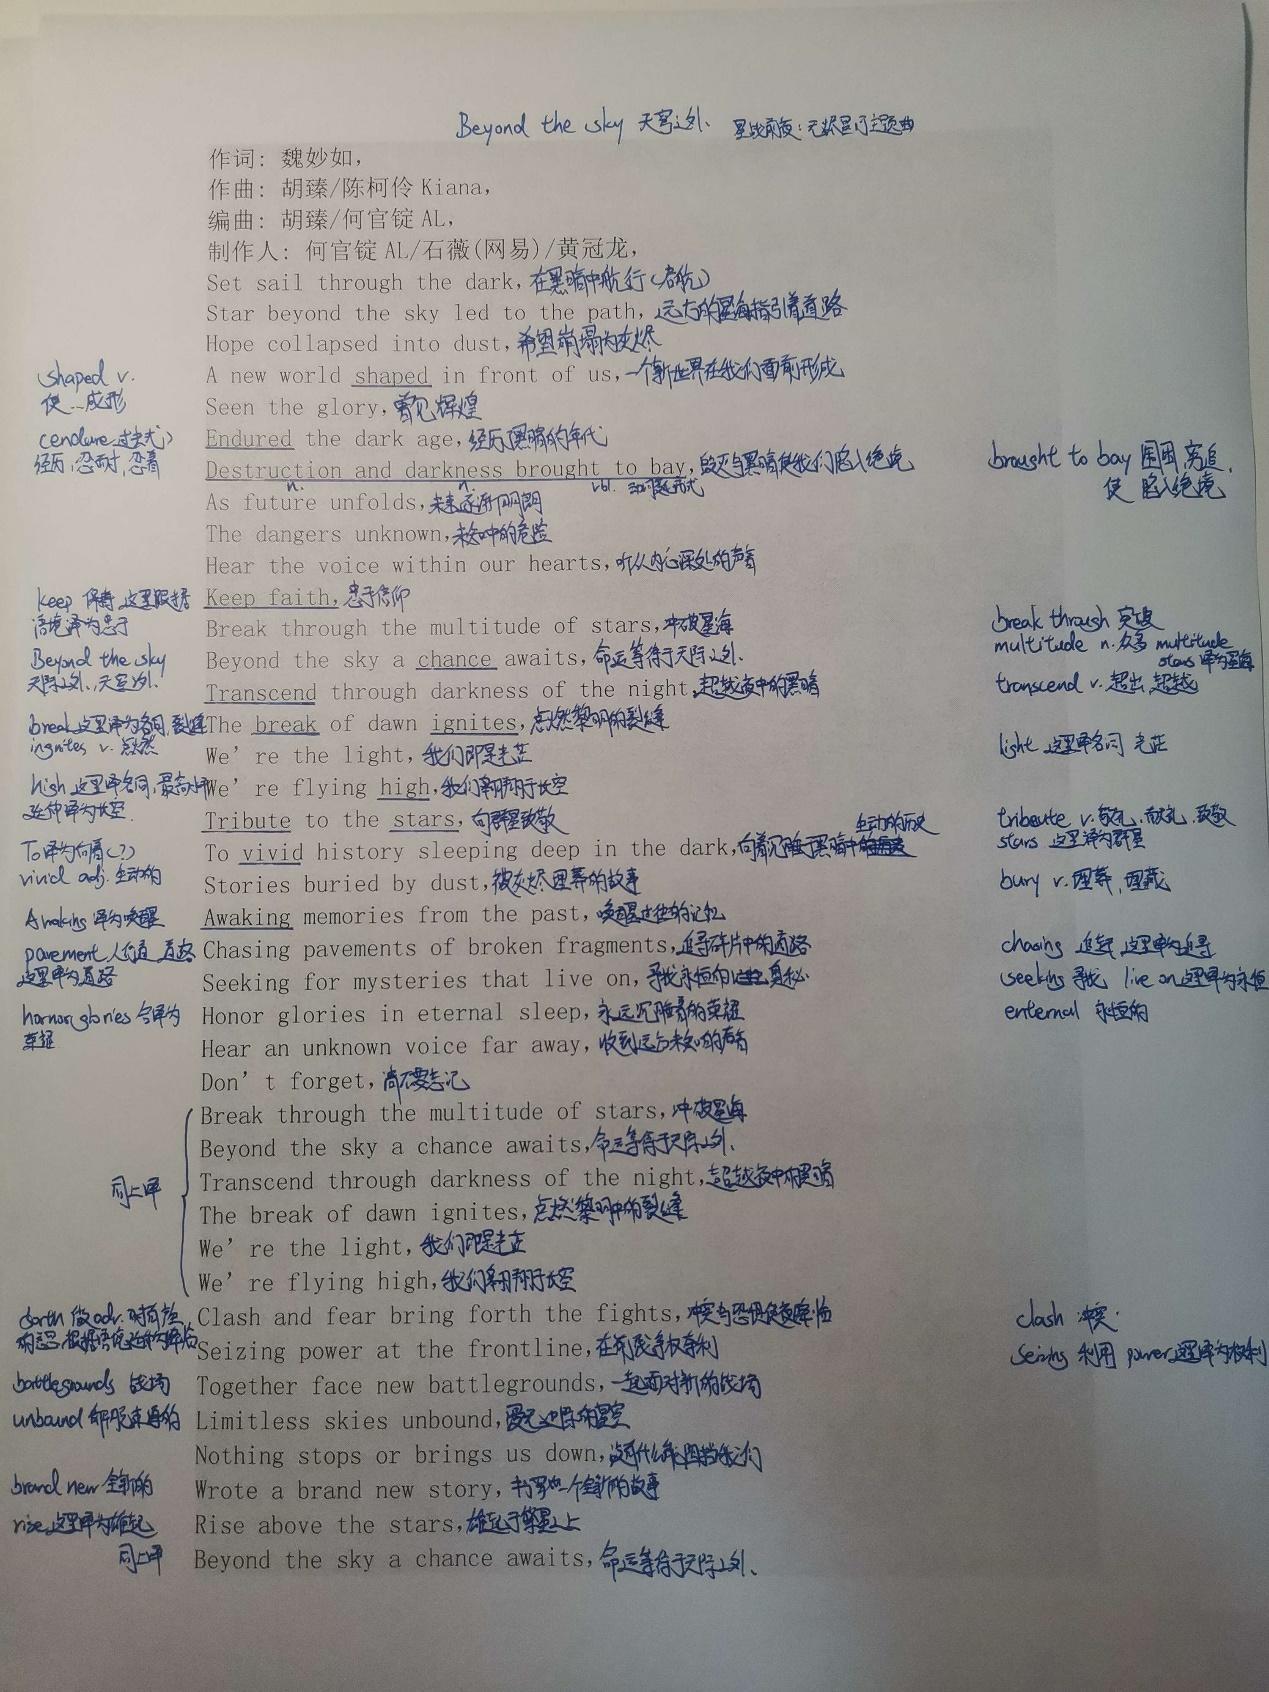 Beyond the sky 天穹之外、 星战前夜:无烬星河主题曲
作词: 魏妙如,
作曲: 胡臻/陈柯伶 Kiana,
编曲: 胡臻/何官锭 AL,
制作人: 何官锭 AL/石薇(网易)/黄冠龙,
Set sail through the dark, 在黑暗中航行(启航)
Star beyond the sky led to the path, 远方的星海指引着道路
Hope collapsed into dust, 希望崩塌为灰烬
shaped v. A new world shaped in front of us, 一个新世界在我们面前形成
使...成形 Seen the glory, 曾见辉煌
Endured the dark age, 经历黑暗的年代
经历, 忍耐, 忍着 Destruction and darkness brought to bay, 毁灭与黑暗使我们陷入绝境 brought to bay 围困, 穷追,
使 陷入绝境
n. n. vbl. 动词过去式
As future unfolds, 未来逐渐开阔
The dangers unknown, 未知中的危险
Hear the voice within our hearts, 听从内心深处的声音
keep 保持, 这里根据 Keep faith, 忠于信仰
语境译为忠于 Break through the multitude of stars, 冲破星海 break through 突破
multitude n. 众多 multitude
stars 译为星海
Beyond the sky Beyond the sky a chance awaits, 命运等待于天际之外、
天际之外、天穹之外、 Transcend through darkness of the night, 超越夜中的黑暗 transcend v. 超出, 超越
break 这里译为名词, 裂缝 The break of dawn ignites, 点燃黎明的裂缝
ingnites v. 点燃 We're the light, 我们即是光芒 light 这里译名词 光芒
high 这里译名词, 最高水平 We're flying high, 我们翱翔于长空
延伸译为长空 Tribute to the stars, 向群星致敬 tribeute v. 敬礼, 献礼, 致敬
生动的历史 stars 这里译为群星
To 译为向着(?) To vivid history sleeping deep in the dark, 向着沉睡于黑暗中
vivid adj. 生动的 Stories buried by dust, 被灰烬埋葬的故事 bury v. 埋葬, 埋藏
Awaking 译为唤醒 Awaking memories from the past, 唤醒过往的记忆
pavement 人行道, 道路 Chasing pavements of broken fragments, 追寻碎片中的道路 chasing 追赶 这里译为追寻
这里译为道路 Seeking for mysteries that live on, 寻找永恒的奥秘 seeking 寻找 live on 这里译为永恒
honor, glories 合译为 Honor glories in eternal sleep, 永远沉睡着的荣耀 enternal 永恒的
荣耀 Hear an unknown voice far away, 收到远方未知的声音
Don't forget, 请不要忘记
Break through the multitude of stars, 冲破星海
Beyond the sky a chance awaits, 命运等待于天际之外、
同上译 Transcend through darkness of the night, 超越夜中的黑暗
The break of dawn ignites, 点燃黎明中的裂缝
We're the light, 我们即是光芒
We're flying high, 我们翱翔于长空
Clash and fear bring forth the fights, 冲突与恐惧使 clash 冲突
Seizing power at the frontline, 在前线争权夺利 seizing 利用 power 这里译为权利
battlegrounds 战场 Together face new battlegrounds, 一起面对新的战场
unbound 解脱束缚的 Limitless skies unbound,
Nothing stops or brings us down, 没有什么能阻挡我们
brand new 全新的 Wrote a brand new story, 书写出一个全新的故事
rise 这里译为雄起 Rise above the stars, 雄起于繁星之上
同上译 Beyond the sky a chance awaits, 命运等待于天际之外、